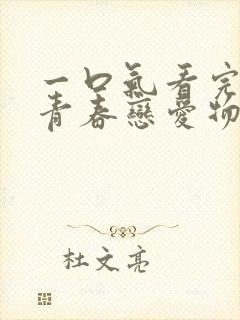 一口氣看完
青春戀愛物
杜文亮